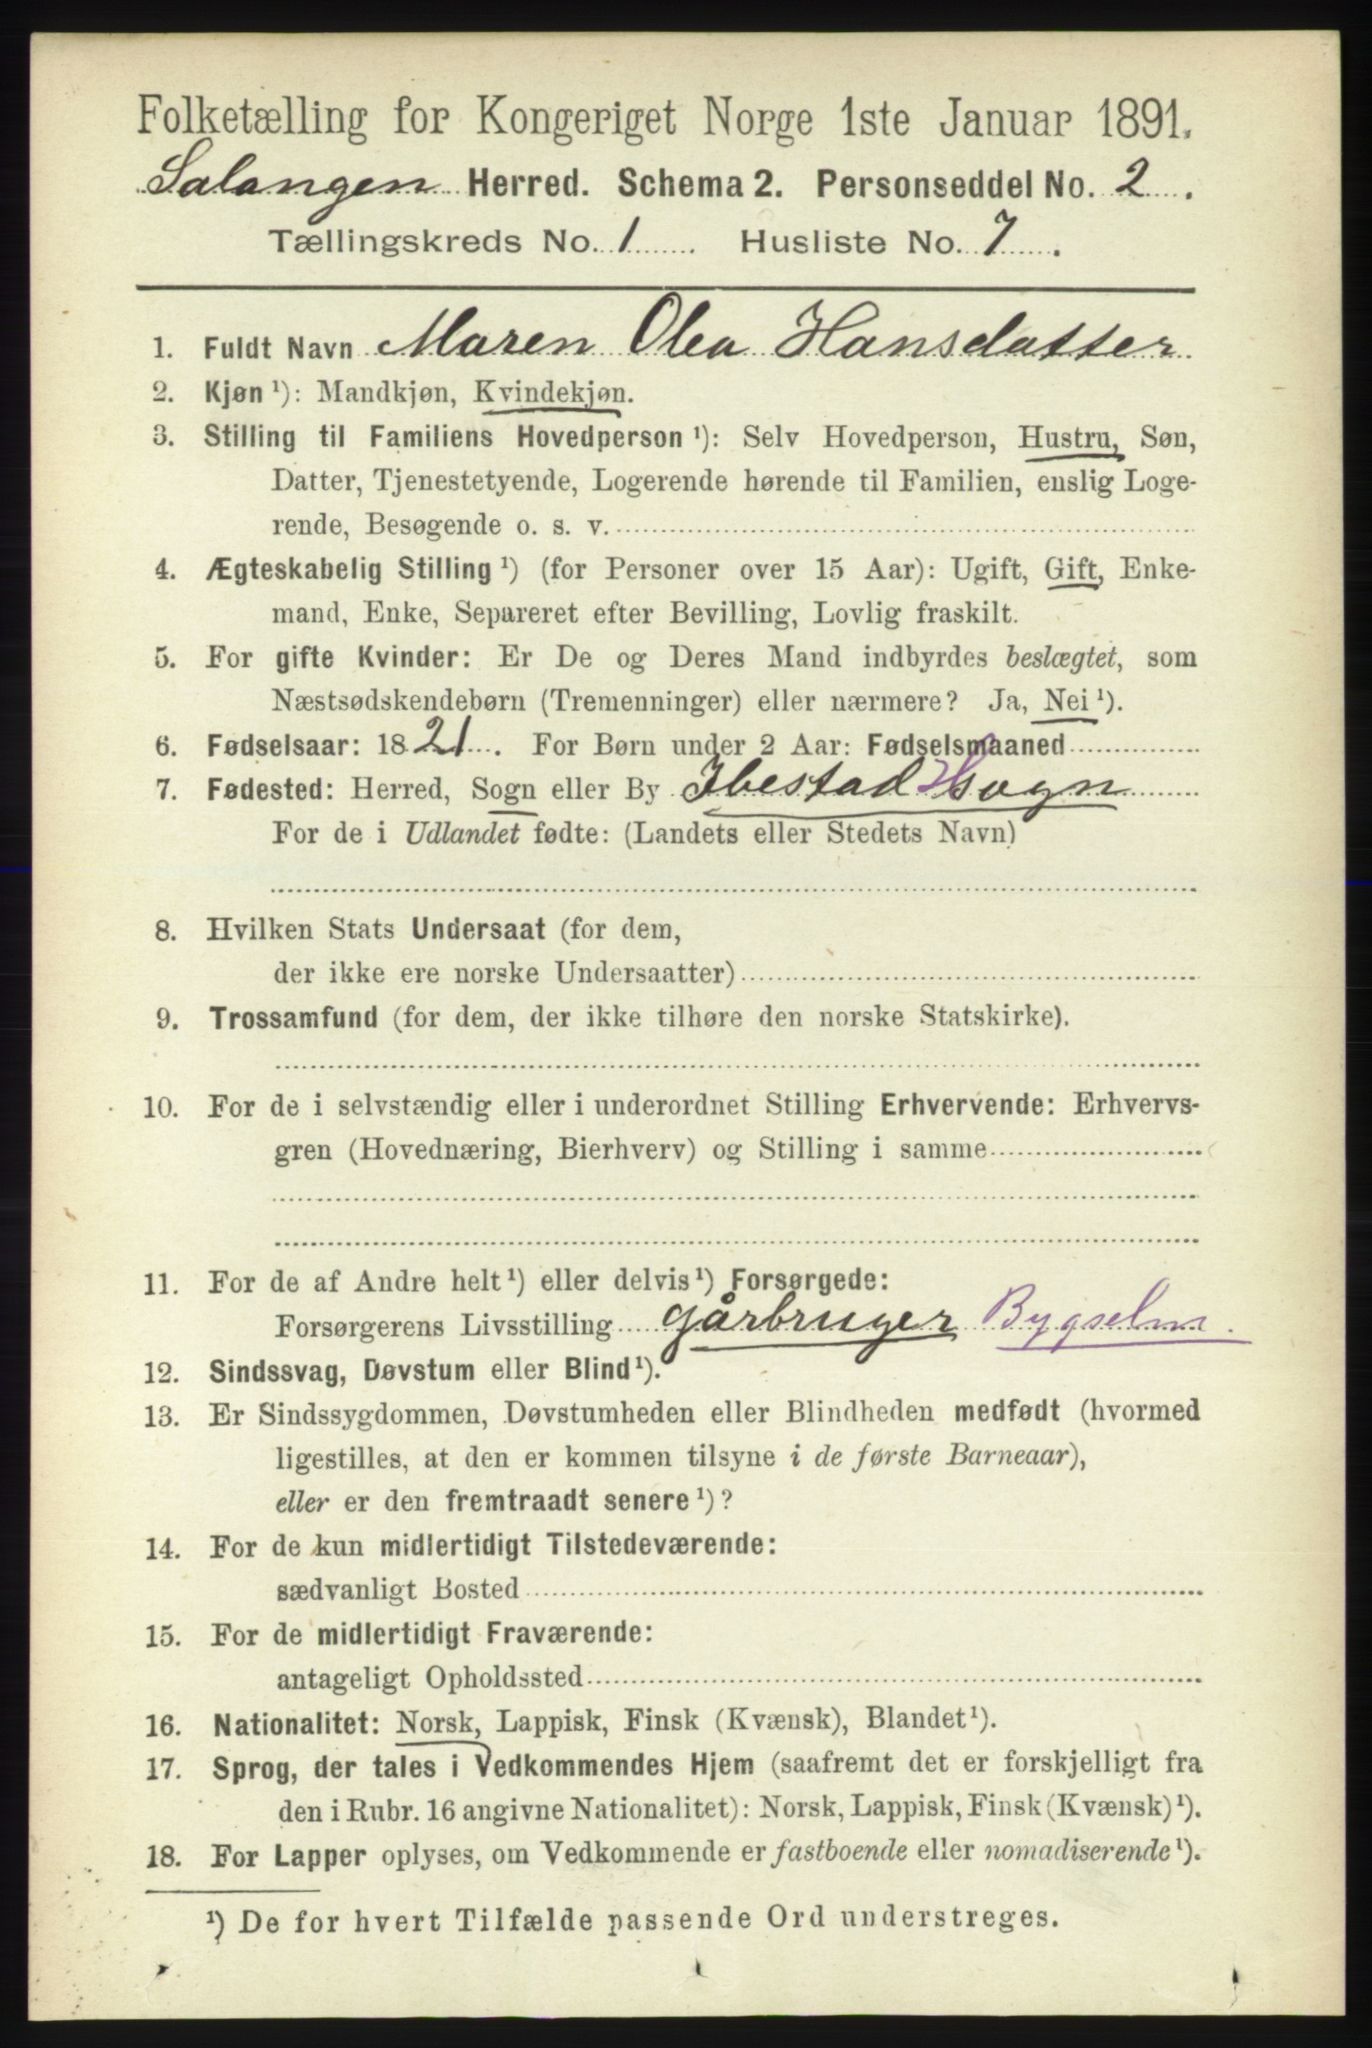 Folketælling for Kongeriget Norge 1ste Januar 1891.
Salangen Herred. Schema 2. Personseddel No. 2.
Tællingskreds No. 1 Husliste No. 7.
1. Fuldt Navn Maren Olea Hansdatter
2. Kjøn ¹): Mandkjøn, Kvindekjøn.
3. Stilling til Familiens Hovedperson ¹): Selv Hovedperson, Hustru, Søn,
Datter, Tjenestetyende, Logerende hørende til Familien, enslig Loge-
rende, Besøgende o. s. v.
4. Ægteskabelig Stilling ¹) (for Personer over 15 Aar): Ugift, Gift, Enke-
mand, Enke, Separeret efter Bevilling, Lovlig fraskilt.
5. For gifte Kvinder: Er De og Deres Mand indbyrdes beslægtet, som
Næstsødskendebørn (Tremenninger) eller nærmere? Ja, Nei ¹).
6. Fødselsaar: 1821. For Børn under 2 Aar: Fødselsmaaned
7. Fødested: Herred, Sogn eller By Ibestad H Sogn
For de i Udlandet fødte: (Landets eller Stedets Navn)
8. Hvilken Stats Undersaat (for dem,
der ikke ere norske Undersaatter)
9. Trossamfund (for dem, der ikke tilhøre den norske Statskirke).
10. For de i selvstændig eller i underordnet Stilling Erhvervende: Erhvervs-
gren (Hovednæring, Bierhverv) og Stilling i samme
11. For de af Andre helt ¹) eller delvis ¹) Forsørgede:
Forsørgerens Livsstilling gårbruger Bygselm.
12. Sindssvag, Døvstum eller Blind ¹).
13. Er Sindssygdommen, Døvstumheden eller Blindheden medfødt (hvormed
ligestilles, at den er kommen tilsyne i de første Barneaar),
eller er den fremtraadt senere ¹)?
14. For de kun midlertidigt Tilstedeværende:
sædvanligt Bosted
15. For de midlertidigt Fraværende:
antageligt Opholdssted
16. Nationalitet: Norsk, Lappisk, Finsk (Kvænsk), Blandet ¹).
17. Sprog, der tales i Vedkommendes Hjem (saafremt det er forskjelligt fra
den i Rubr. 16 angivne Nationalitet): Norsk, Lappisk, Finsk (Kvænsk) ¹).
18. For Lapper oplyses, om Vedkommende er fastboende eller nomadiserende ¹).
¹) De for hvert Tilfælde passende Ord understreges.